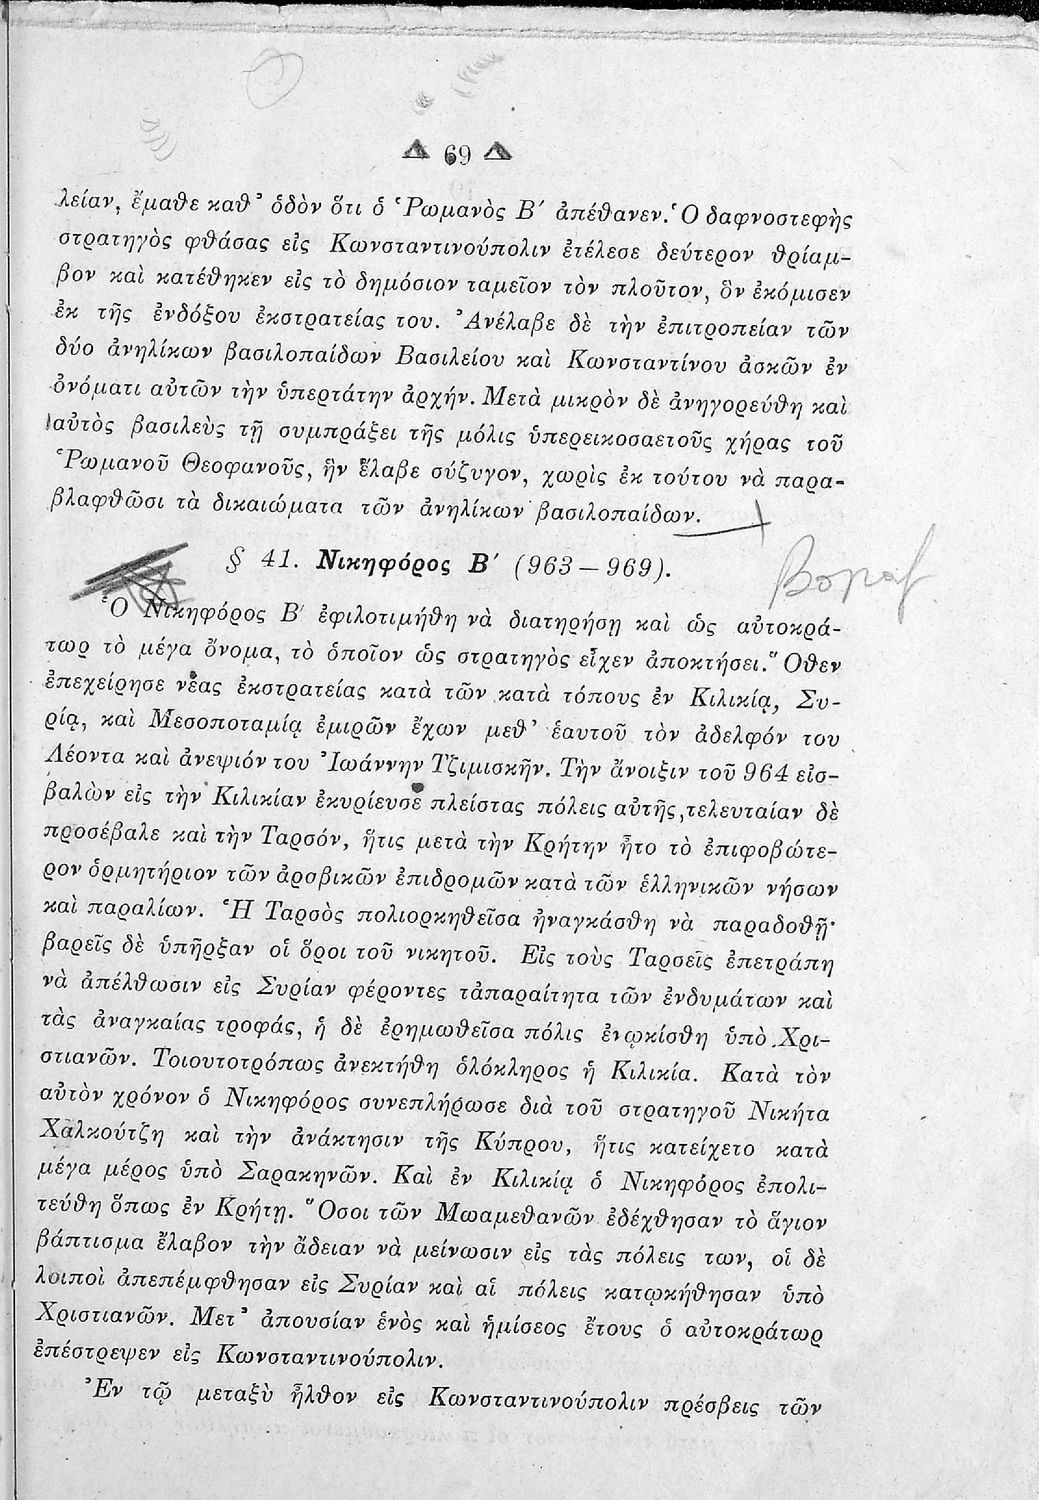 69
λείαν, ἔμαθε καθ’ ὁδὸν ὅτι ὁ Ῥωμανὸς Β′ ἀπέθανεν. Ὁ δαφνοστεφὴς
στρατηγὸς φθάσας εἰς Κωνσταντινούπολιν ἐτέλεσε δεύτερον θρίαμ-
βον καὶ κατέθηκεν εἰς τὸ δημόσιον ταμεῖον τὸν πλοῦτον, ὃν ἐκόμισεν
ἐκ τῆς ἐνδόξου ἐκστρατείας του. Ἀνέλαβε δὲ τὴν ἐπιτροπείαν τῶν
δύο ἀνηλίκων βασιλοπαίδων Βασιλείου καὶ Κωνσταντίνου ἀσκῶν ἐν
ὀνόματι αὐτῶν τὴν ὑπερτάτην ἀρχήν. Μετὰ μικρὸν δὲ ἀνηγορεύθη καὶ
αὐτὸς βασιλεὺς τῇ συμπράξει τῆς μόλις ὑπερεικοσαετοῦς χήρας τοῦ
Ῥωμανοῦ Θεοφανοῦς, ἣν ἔλαβε σύζυγον, χωρὶς ἐκ τούτου νὰ παρα-
βλαφθῶσι τὰ δικαιώματα τῶν ἀνηλίκων βασιλοπαίδων.
§ 41. Νικηφόρος Β′ (963 – 969).
Ὁ Νικηφόρος Β′ ἐφιλοτιμήθη νὰ διατηρήσῃ καὶ ὡς αὐτοκρά-
τωρ τὸ μέγα ὄνομα, τὸ ὁποῖον ὡς στρατηγὸς εἶχεν ἀποκτήσει. Ὅθεν
ἐπεχείρησε νέας ἐκστρατείας κατὰ τῶν κατὰ τόπους ἐν Κιλικίᾳ, Συ-
ρίᾳ, καὶ Μεσοποταμίᾳ ἐμιρῶν ἔχων μεθ’ ἑαυτοῦ τὸν ἀδελφόν του
Λέοντα καὶ ἀνεψιόν του Ἰωάννην Τζιμισκῆν. Τὴν ἄνοιξιν τοῦ 964 εἰσ-
βαλὼν εἰς τὴν Κιλικίαν ἐκυρίευσε πλείστας πόλεις αὐτῆς, τελευταίαν δὲ
προσέβαλε καὶ τὴν Ταρσόν, ἥτις μετὰ τὴν Κρήτην ἦτο τὸ ἐπιφοβώτε-
ρον ὁρμητήριον τῶν ἀραβικῶν ἐπιδρομῶν κατὰ τῶν ἑλληνικῶν νήσων
καὶ παραλίων. Ἡ Ταρσὸς πολιορκηθεῖσα ἠναγκάσθη νὰ παραδοθῇ·
βαρεῖς δὲ ὑπῆρξαν οἱ ὅροι τοῦ νικητοῦ. Εἰς τοὺς Ταρσεῖς ἐπετράπη
νὰ ἀπέλθωσιν εἰς Συρίαν φέροντες τἀπαραίτητα τῶν ἐνδυμάτων καὶ
τὰς ἀναγκαίας τροφάς, ἡ δὲ ἐρημωθεῖσα πόλις ἐνῳκίσθη ὑπὸ Χρι-
στιανῶν. Τοιουτοτρόπως ἀνεκτήθη ὁλόκληρος ἡ Κιλικία. Κατὰ τὸν
αὐτὸν χρόνον ὁ Νικηφόρος συνεπλήρωσε διὰ τοῦ στρατηγοῦ Νικήτα
Χαλκούτζη καὶ τὴν ἀνάκτησιν τῆς Κύπρου, ἥτις κατείχετο κατὰ
μέγα μέρος ὑπὸ Σαρακηνῶν. Καὶ ἐν Κιλικίᾳ ὁ Νικηφόρος ἐπολι-
τεύθη ὅπως ἐν Κρήτῃ. Ὅσοι τῶν Μωαμεθανῶν ἐδέχθησαν τὸ ἅγιον
βάπτισμα ἔλαβον τὴν ἄδειαν νὰ μείνωσιν εἰς τὰς πόλεις των, οἱ δὲ
λοιποὶ ἀπεπέμφθησαν εἰς Συρίαν καὶ αἱ πόλεις κατῳκήθησαν ὑπὸ
Χριστιανῶν. Μετ’ ἀπουσίαν ἑνὸς καὶ ἡμίσεος ἔτους ὁ αὐτοκράτωρ
ἐπέστρεψεν εἰς Κωνσταντινούπολιν.
Ἐν τῷ μεταξὺ ἦλθον εἰς Κωνσταντινούπολιν πρέσβεις τῶν